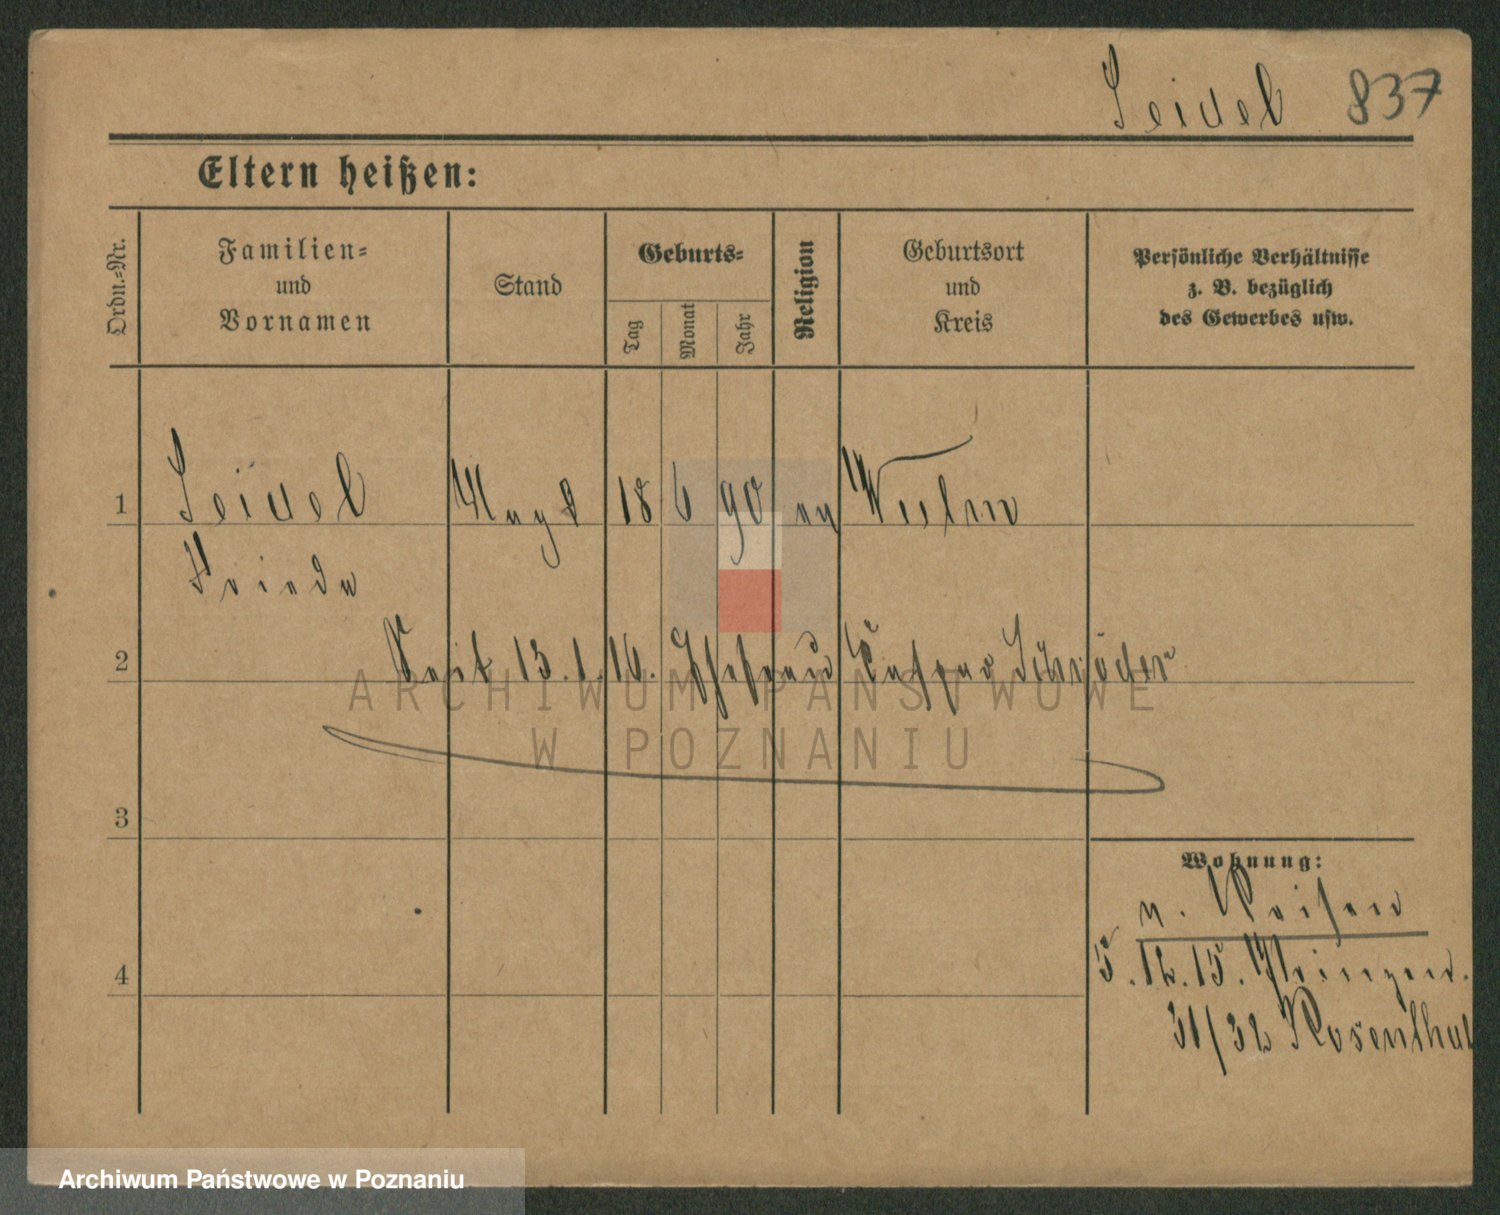 Seidel 837
Eltern heißen:
Ordn.=Nr.
Familien=
und
Vornamen
Stand
Geburts=
Tag
Monat
Jahr
Religion
Geburtsort
und
Kreis
Persönliche Verhältnisse
z. B. bezüglich
des Gewerbes usw.
1 Seidel Magd 18 6 90 ev
Frieda
2 Seit 13.1.16. Ehefrau Schröder
ARCHIWUM PAŃSTWOWE
W POZNANIU
3
Wohnung:
n. Posen
4 5.12.15.
31/32 Rosenthal
Archiwum Państwowe w Poznaniu